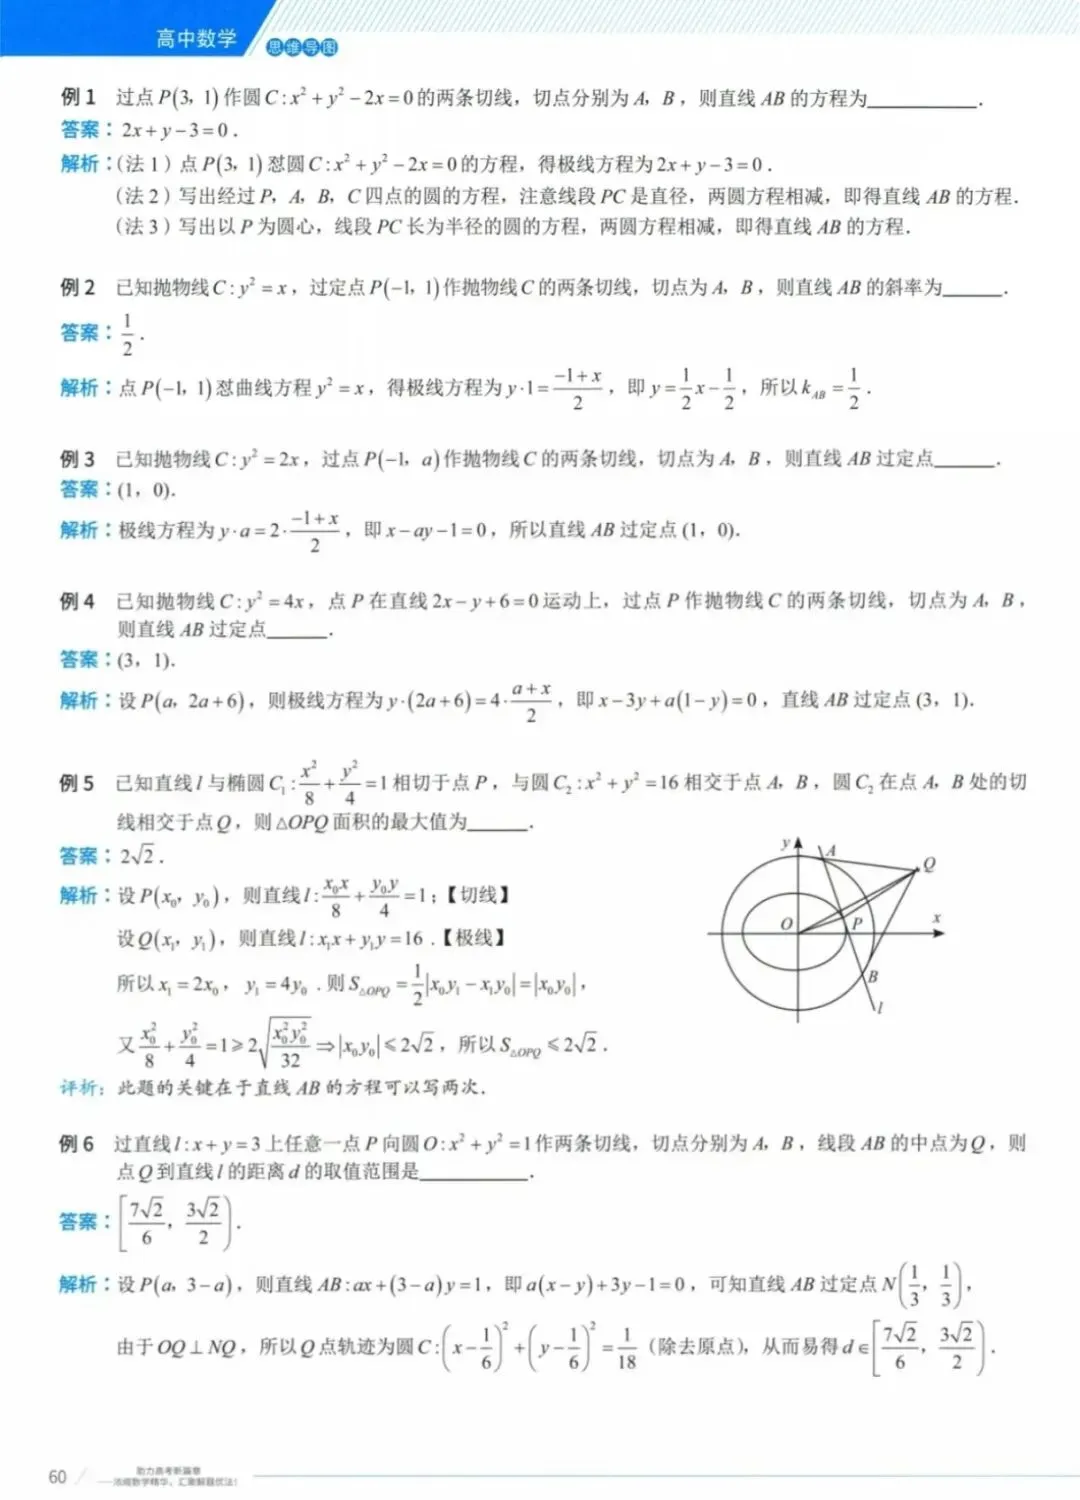 高中数学
思维导图
例1 过点 P(3, 1) 作圆 C : x² + y² − 2x = 0 的两条切线，切点分别为 A，B，则直线 AB 的方程为____________.
答案：2x + y − 3 = 0.
解析：(法1) 点 P(3, 1) 怼圆 C : x² + y² − 2x = 0 的方程，得极线方程为 2x + y − 3 = 0.
(法2) 写出经过 P，A，B，C 四点的圆的方程，注意线段 PC 是直径，两圆方程相减，即得直线 AB 的方程.
(法3) 写出以 P 为圆心，线段 PC 长为半径的圆的方程，两圆方程相减，即得直线 AB 的方程.
例2 已知抛物线 C : y² = x，过定点 P(−1, 1) 作抛物线 C 的两条切线，切点为 A，B，则直线 AB 的斜率为______.
答案：1/2.
解析：点 P(−1, 1) 怼曲线方程 y² = x，得极线方程为 y·1 = (−1+x)/2，即 y = 1/2 x − 1/2，所以 k_AB = 1/2.
例3 已知抛物线 C : y² = 2x，过点 P(−1, a) 作抛物线 C 的两条切线，切点为 A，B，则直线 AB 过定点______.
答案：(1, 0).
解析：极线方程为 y·a = 2·(−1+x)/2，即 x − ay − 1 = 0，所以直线 AB 过定点 (1, 0).
例4 已知抛物线 C : y² = 4x，点 P 在直线 2x − y + 6 = 0 运动上，过点 P 作抛物线 C 的两条切线，切点为 A，B，
则直线 AB 过定点______.
答案：(3, 1).
解析：设 P(a, 2a+6)，则极线方程为 y·(2a+6) = 4·(a+x)/2，即 x − 3y + a(1−y) = 0，直线 AB 过定点 (3, 1).
例5 已知直线 l 与椭圆 C₁ : x²/8 + y²/4 = 1 相切于点 P，与圆 C₂ : x² + y² = 16 相交于点 A，B，圆 C₂ 在点 A，B 处的切
线相交于点 Q，则 △OPQ 面积的最大值为______.
答案：2√2.
解析：设 P(x₀, y₀)，则直线 l : x₀x/8 + y₀y/4 = 1；【切线】
设 Q(x₁, y₁)，则直线 l : x₁x + y₁y = 16.【极线】
所以 x₁ = 2x₀，y₁ = 4y₀. 则 S△OPQ = 1/2|x₀y₁ − x₁y₀| = |x₀y₀|，
又 x₀²/8 + y₀²/4 = 1 ≥ 2√(x₀²y₀²/32) ⇒ |x₀y₀| ≤ 2√2，所以 S△OPQ ≤ 2√2.
y
A
Q
O
P
x
B
l
评析：此题的关键在于直线 AB 的方程可以写两次.
例6 过直线 l : x + y = 3 上任意一点 P 向圆 O : x² + y² = 1 作两条切线，切点分别为 A，B，线段 AB 的中点为 Q，则
点 Q 到直线 l 的距离 d 的取值范围是____________.
答案：[7√2/6, 3√2/2).
解析：设 P(a, 3−a)，则直线 AB : ax + (3−a)y = 1，即 a(x−y) + 3y − 1 = 0，可知直线 AB 过定点 N(1/3, 1/3)，
由于 OQ ⊥ NQ，所以 Q 点轨迹为圆 C : (x − 1/6)² + (y − 1/6)² = 1/18 (除去原点)，从而易得 d ∈ [7√2/6, 3√2/2).
60
助力高考新篇章
——浓缩数学精华，汇聚解题优法！